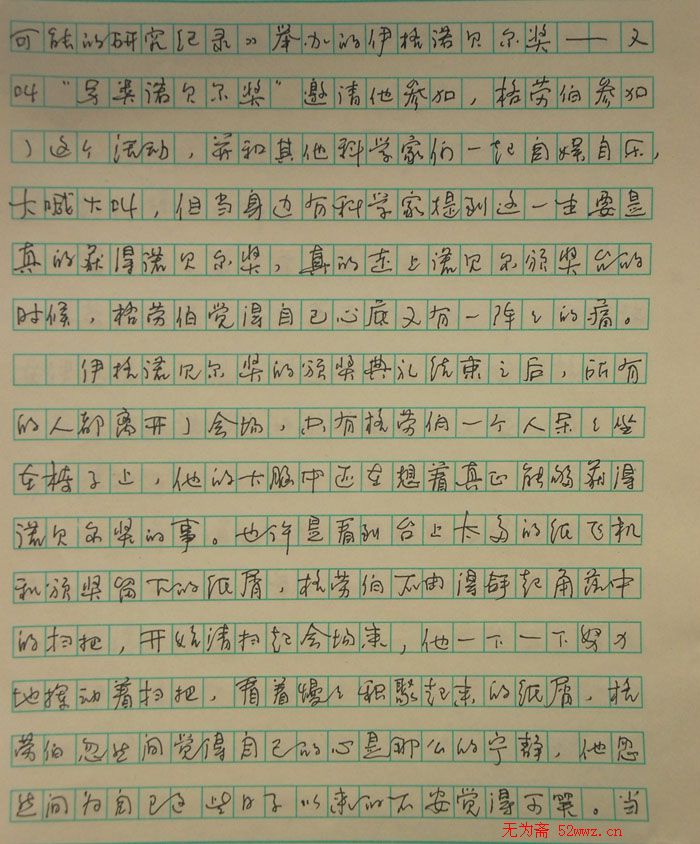 可能的研究纪录》举办的伊格诺贝尔奖——又
叫“另类诺贝尔奖”邀请他参加，格劳伯参加
了这个活动，并和其他科学家们一起自娱自乐，
大喊大叫，但当身边有科学家提到这一生要是
真的获得诺贝尔奖，真的走上诺贝尔颁奖台的
时候，格劳伯觉得自己心底又有一阵々的痛。
伊格诺贝尔奖的颁奖典礼结束之后，所有
的人都离开了会场，只有格劳伯一个人呆々坐
在椅子上，他的大脑中还在想着真正能够获得
诺贝尔奖的事。也许是看到台上太多的纸飞机
和颁奖留下的纸屑，格劳伯不由得拿起角落中
的扫把，开始清扫起会场来，他一下一下努力
地挥动着扫把，看着慢々积聚起来的纸屑，格
劳伯忽然间觉得自己的心是那么的宁静，他忽
然间为自己这些日子以来的不安觉得可笑。当
无为斋 52wwz.cn